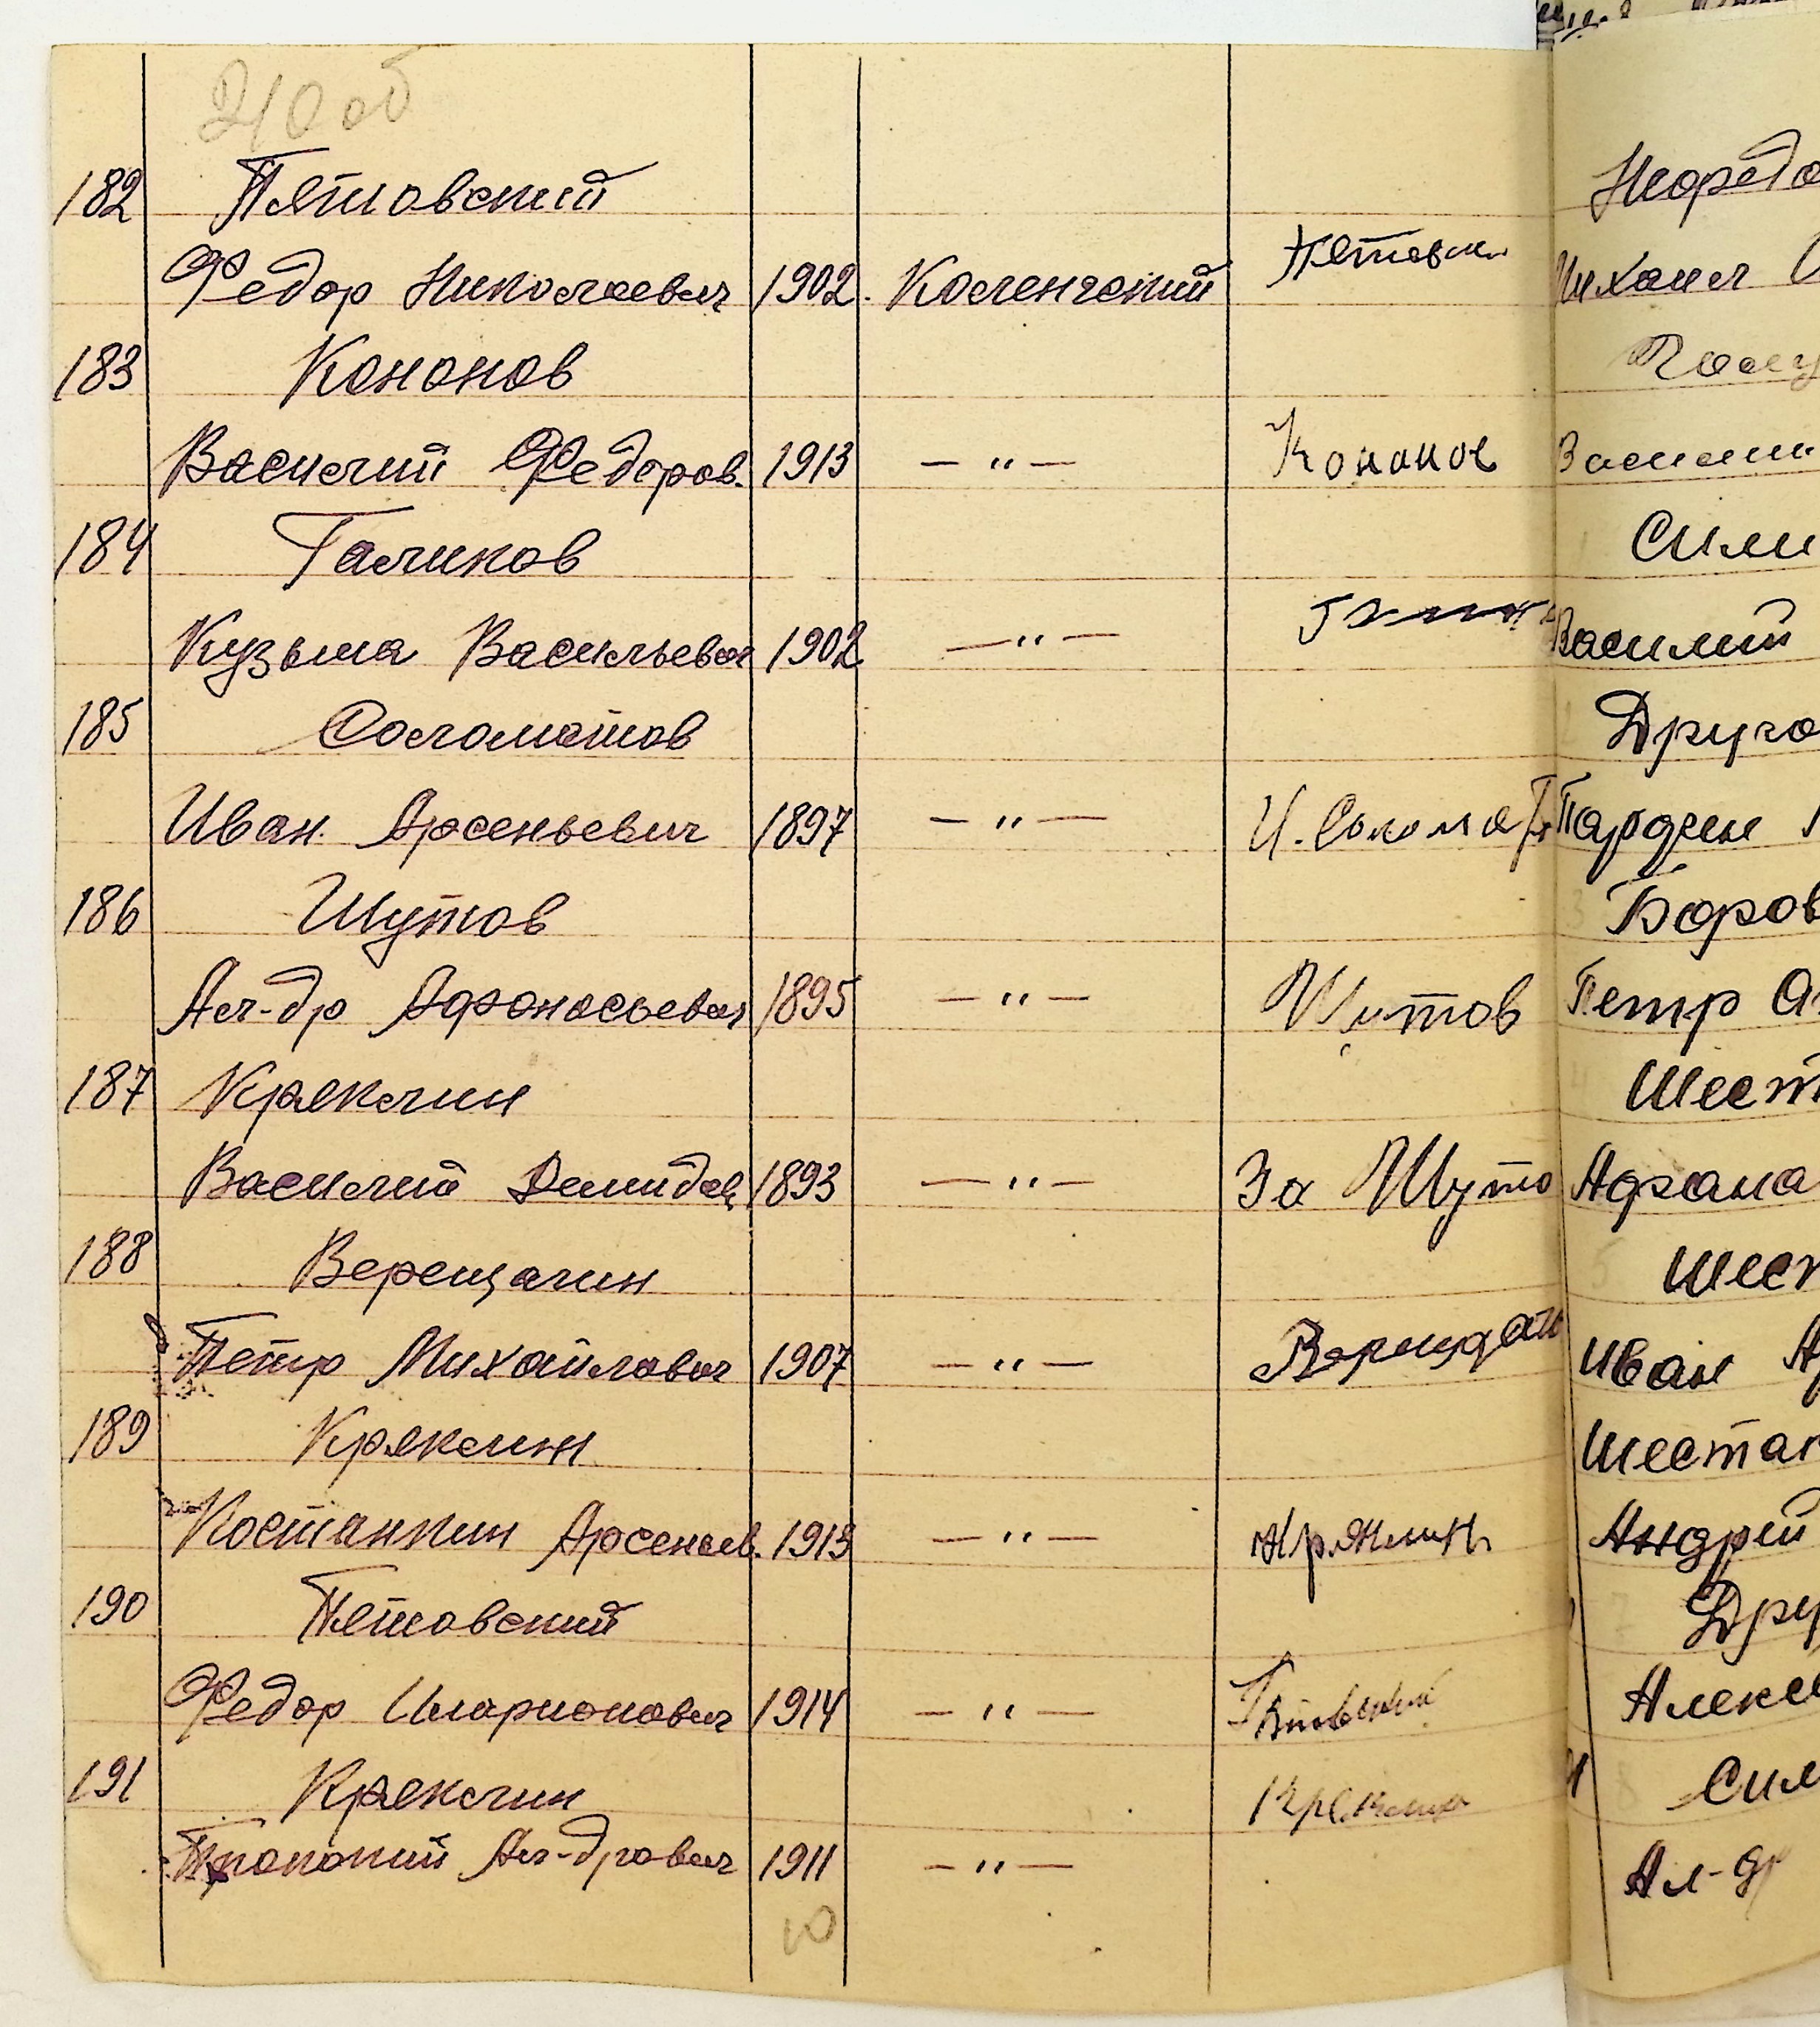 210об
182 Пятовский
Федор Николаевич 1902. Коленчский Пятовски
183 Кононов
Василий Федоров. 1913 — " — Кононов
184 Галинов
Кузьма Васильевич 1902 — " —
185 Соломатов
Иван Арсеньевич 1897 — " — И. Солома
186 Шутов
Ал-др Афонасьевич 1895 — " — Шутов
187 Кряклин
Василий Демидов 1893 — " — За Шуто
188 Верещагин
Петр Михайлович 1907 — " —
189 Кряклин
Костанкин Арсеньев. 1913 — " — Кряклин
190 Пятовский
Федор Иларионович 1914 — " —
191 Кряклин
Прокопий Ал-дрович 1911 — " —
10
Михаил
Василий
Сили
Василий
Друго
Парфен
Боров
Петр
Шест
Афана
Шест
Иван
Шестак
Андрей
Дру
Алексе
Сил
Ал-др